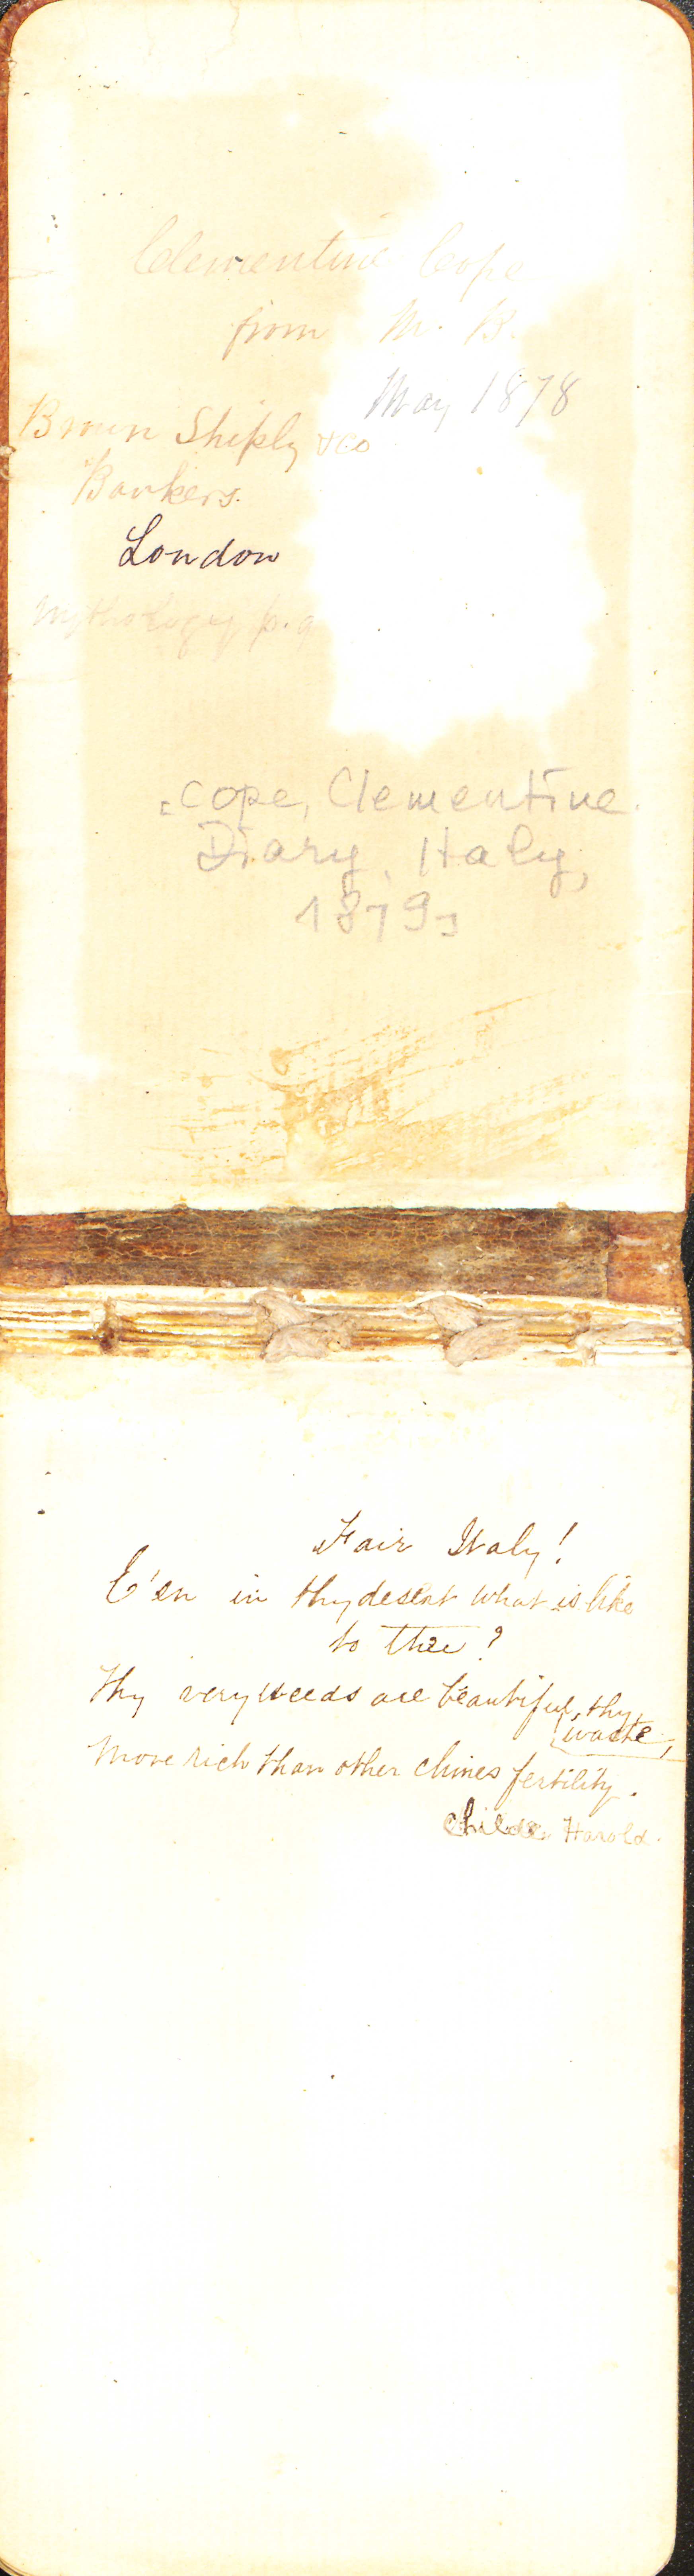 Clementine Cope
from M. B.
May 1878
Brown Shiply & Co
Bankers.
London
Mythology p. 9
[Cope, Clementine.
Diary, Italy,
1879]
Fair Italy!
E'en in thy desert what is like
to thee?
Thy very weeds are beautiful, thy
waste,
More rich than other climes fertility.
Childe Harold.